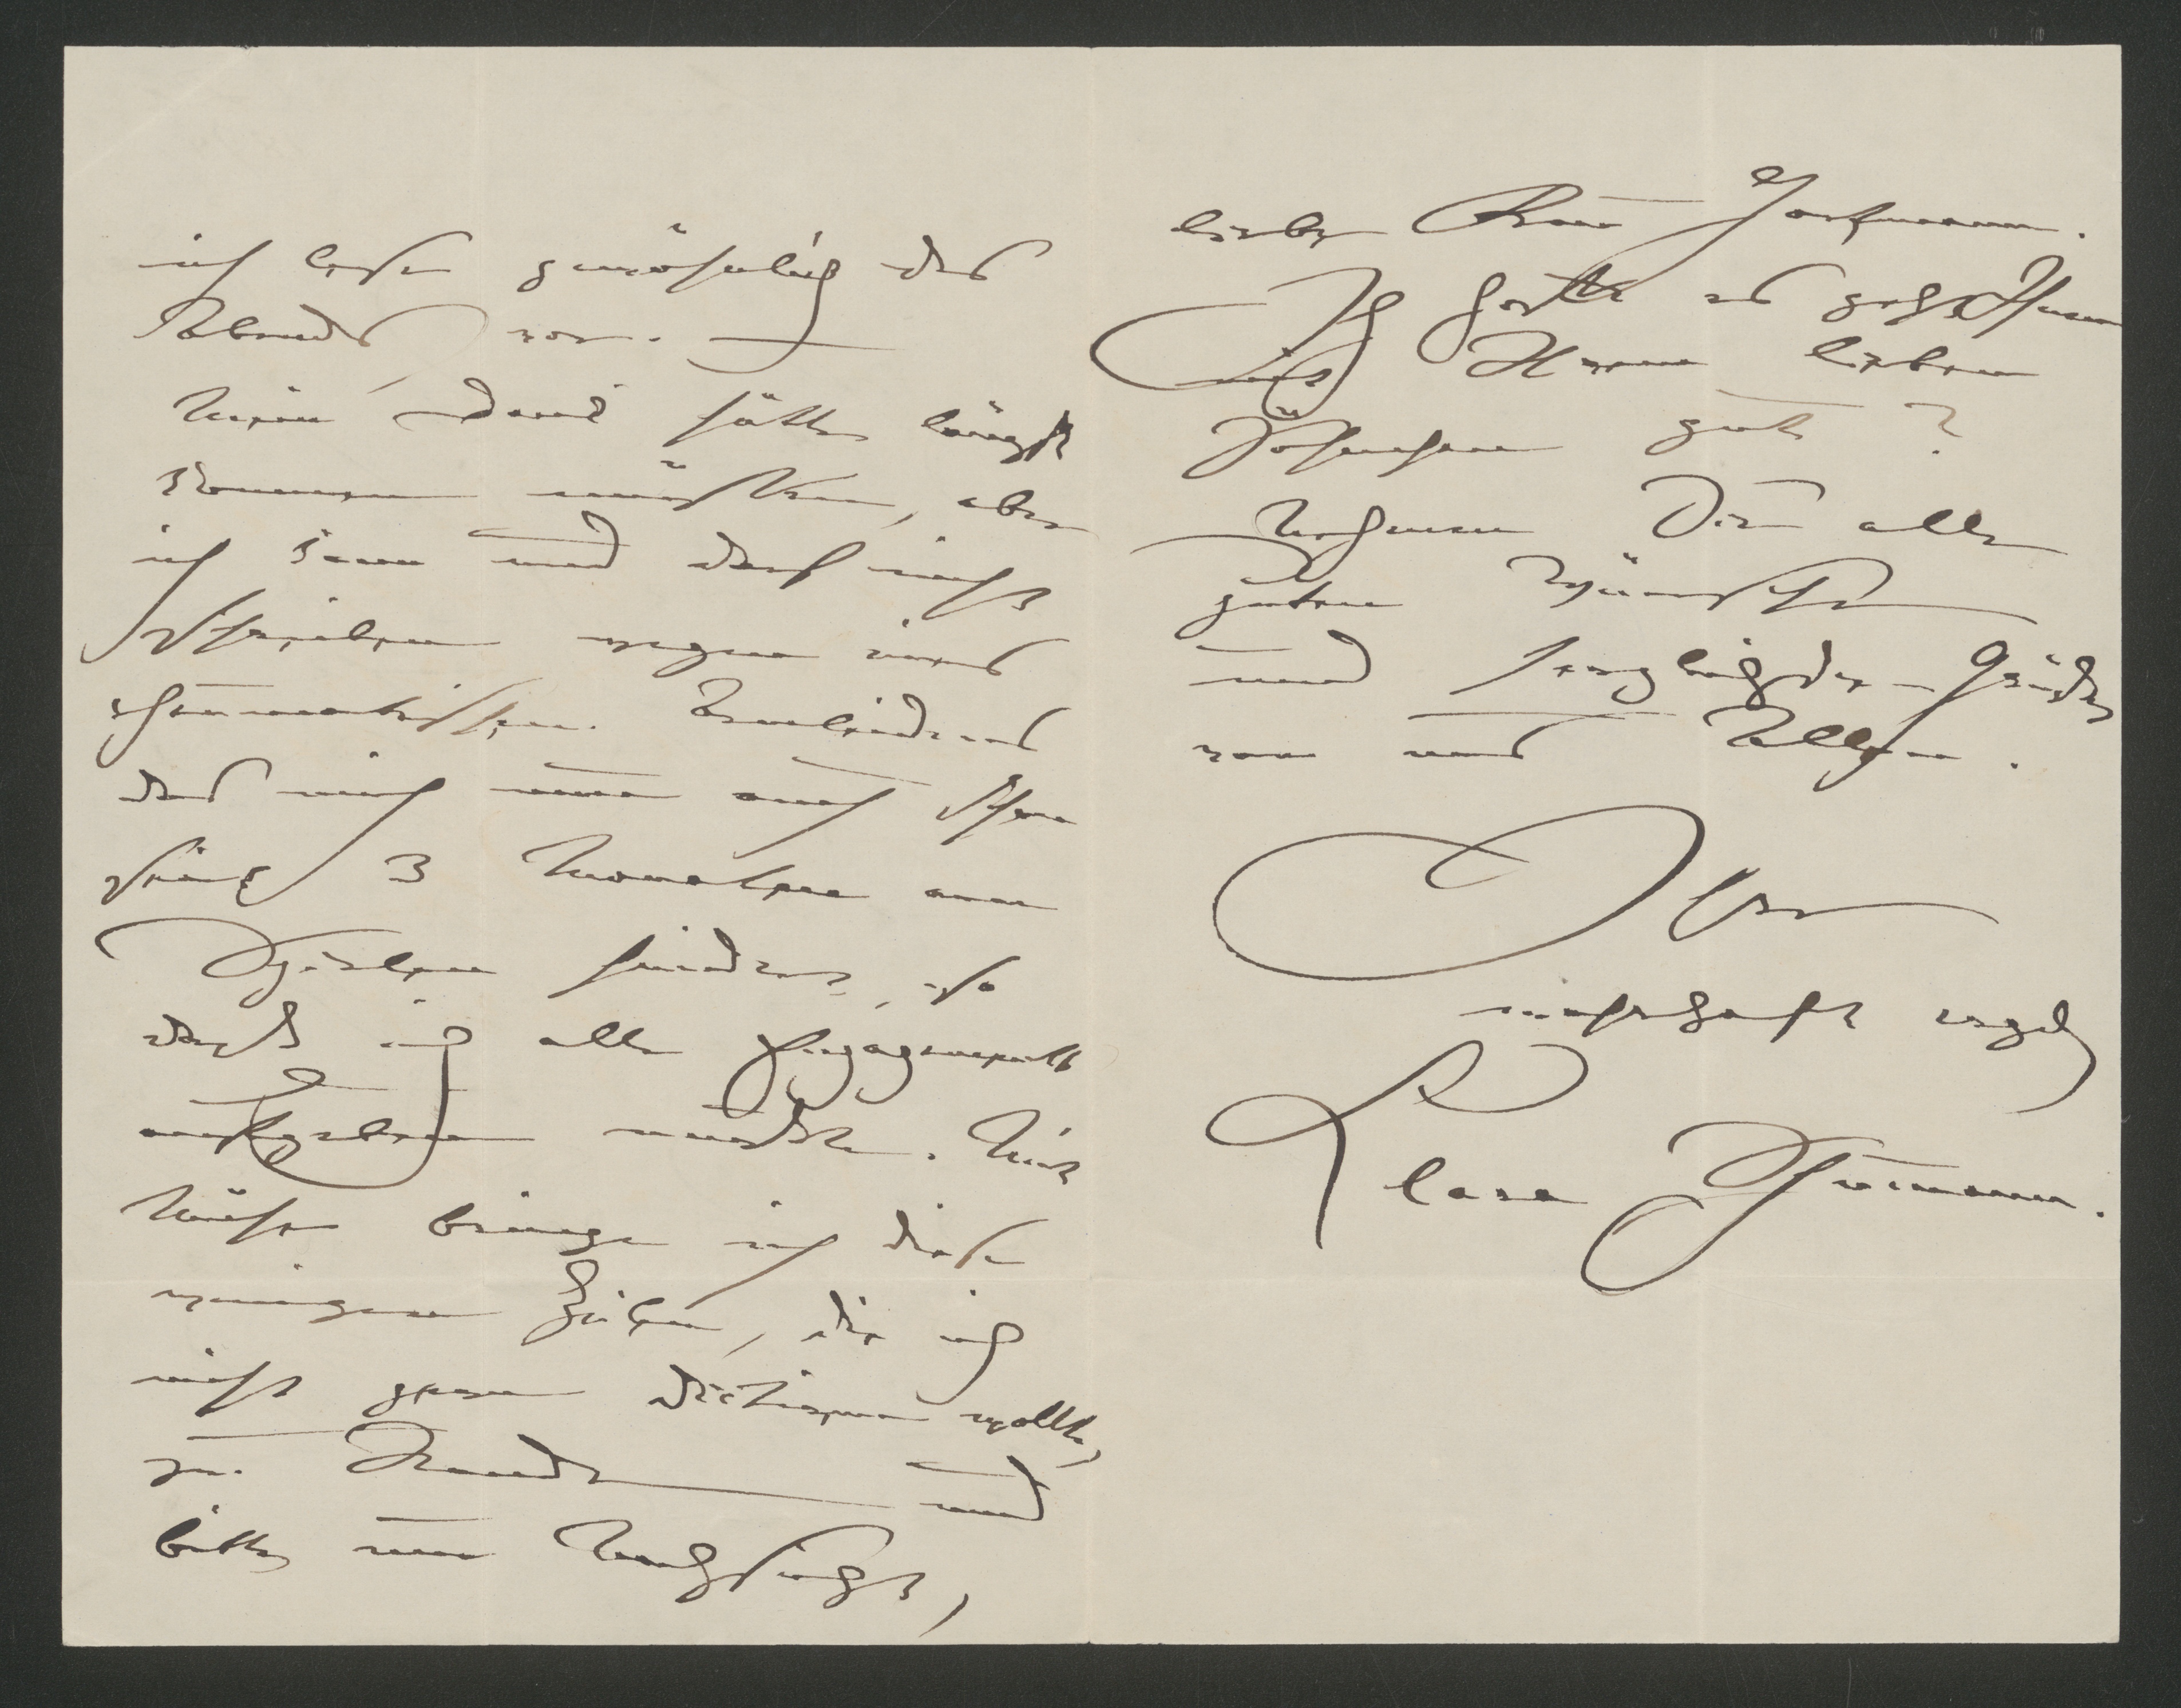 ich lese gewöhnlich des
Abends vor.
Mein Dank hätte längst
kommen müssen, aber
ich kann und darf nicht
schreiben wegen eines
rheumatischen Armleidens
das mich nun auch schon
seit 3 Monaten am
Spielen hindert, so
daß ich alle Engagements
aufgeben mußte. Mit
Mühe bringe ich diese
wenigen Zeilen, die ich
nicht gern dictieren wollte,
zu Stande und
bitte um Nachsicht,
liebe Frau
Ich hoffe es geht Ihnen
und Ihrem lieben
Söhnchen gut?
Nehmen Sie alle
guten Wünsche
und herzlichsten Grüße
von uns Allen.
Ihre
ergeb
Clara Schumann.